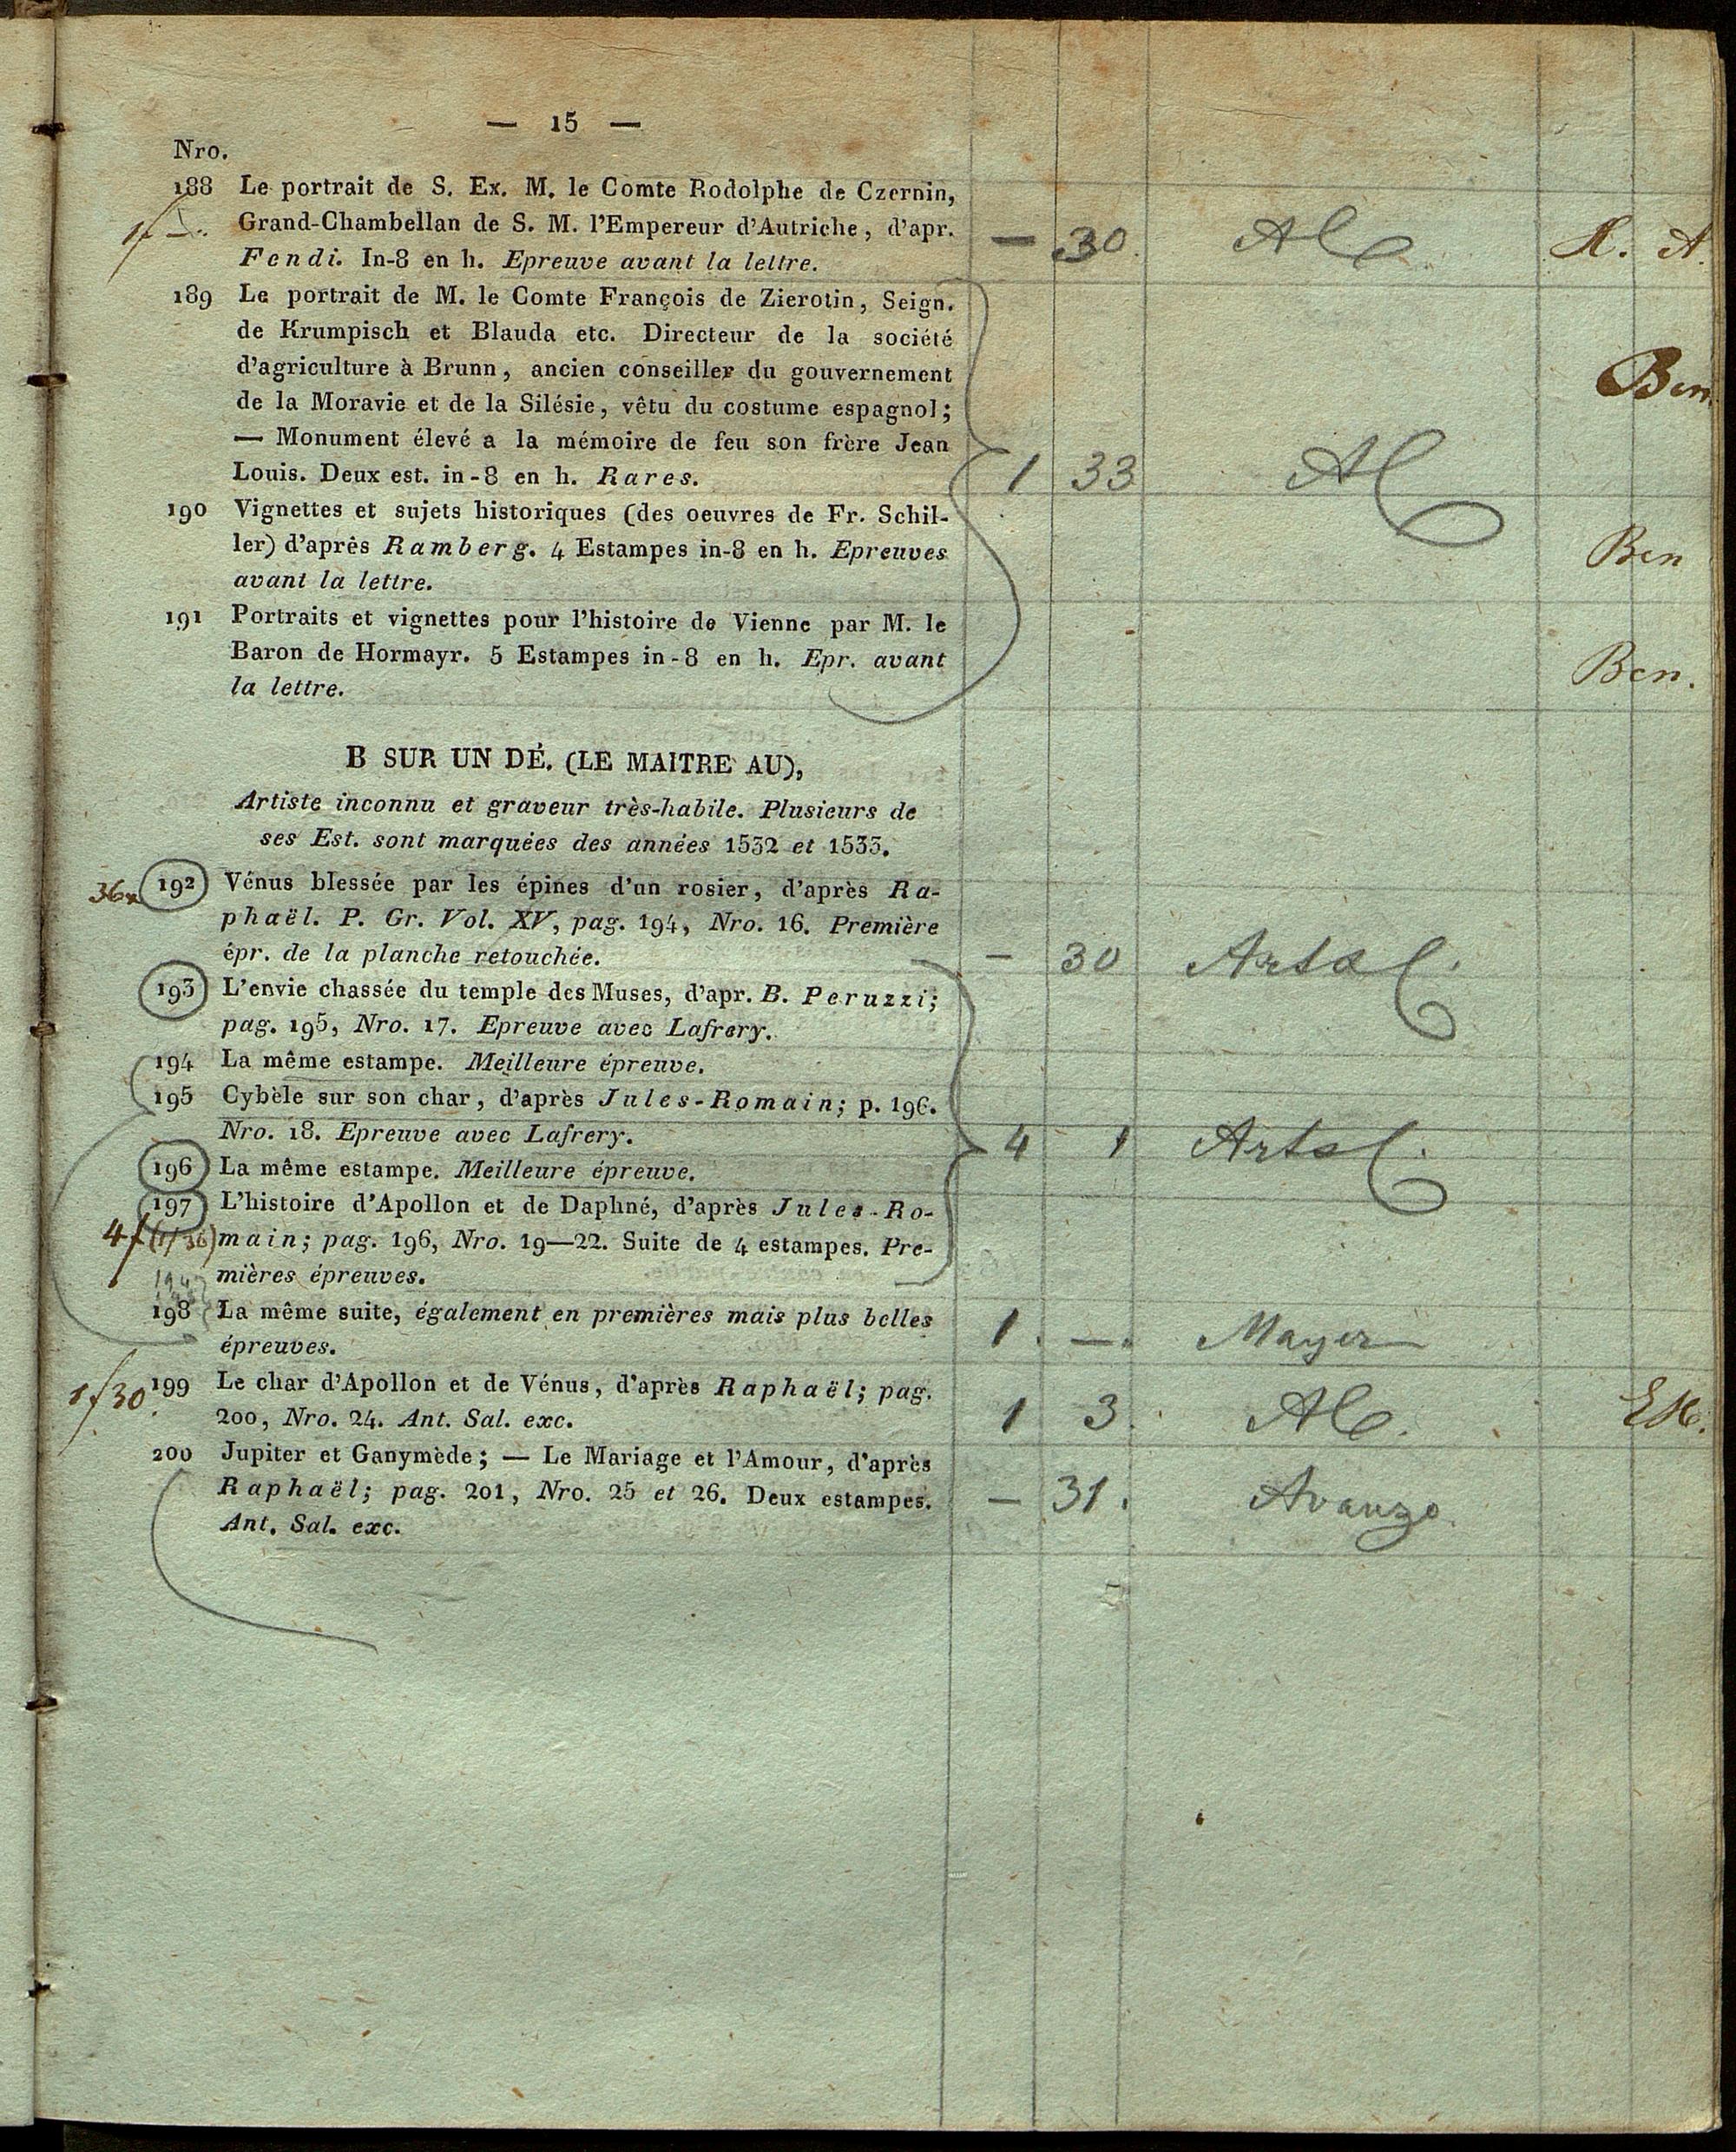 — 15 —
Nro.
188 Le portrait de S. Ex. M. le Comte Rodolphe de Czernin,
1f —. Grand-Chambellan de S. M. l'Empereur d'Autriche, d'apr. — 30. H. A.
Fendi. In-8 en h. Epreuve avant la lettre.
189 Le portrait de M. le Comte François de Zierotin, Seign.
de Krumpisch et Blauda etc. Directeur de la société
d'agriculture à Brunn, ancien conseiller du gouvernement Ben.
de la Moravie et de la Silésie, vêtu du costume espagnol;
— Monument élevé a la mémoire de feu son frère Jean
Louis. Deux est. in-8 en h. Rares. 1 33
190 Vignettes et sujets historiques (des oeuvres de Fr. Schil-
ler) d'après Ramberg. 4 Estampes in-8 en h. Epreuves Ben
avant la lettre.
191 Portraits et vignettes pour l'histoire de Vienne par M. le
Baron de Hormayr. 5 Estampes in-8 en h. Epr. avant Ben.
la lettre.
B SUR UN DÉ. (LE MAITRE AU),
Artiste inconnu et graveur très-habile. Plusieurs de
ses Est. sont marquées des années 1532 et 1533.
36x 192 Vénus blessée par les épines d'un rosier, d'après Ra-
phaël. P. Gr. Vol. XV, pag. 194, Nro. 16. Première
épr. de la planche retouchée. — 30 Artal.
193 L'envie chassée du temple des Muses, d'apr. B. Peruzzi;
pag. 195, Nro. 17. Epreuve avec Lafrery.
194 La même estampe. Meilleure épreuve.
195 Cybèle sur son char, d'après Jules-Romain; p. 196.
Nro. 18. Epreuve avec Lafrery. 4 1 Artal.
196 La même estampe. Meilleure épreuve.
197 L'histoire d'Apollon et de Daphné, d'après Jules-Ro-
4f (1f 36) main; pag. 196, Nro. 19—22. Suite de 4 estampes. Pre-
mières épreuves.
198 La même suite, également en premières mais plus belles
épreuves. 1. —. Mayer
1f30. 199 Le char d'Apollon et de Vénus, d'après Raphaël; pag.
200, Nro. 24. Ant. Sal. exc. 1 3.
200 Jupiter et Ganymède; — Le Mariage et l'Amour, d'après
Raphaël; pag. 201, Nro. 25 et 26. Deux estampes. — 31. Avanzo.
Ant. Sal. exc.